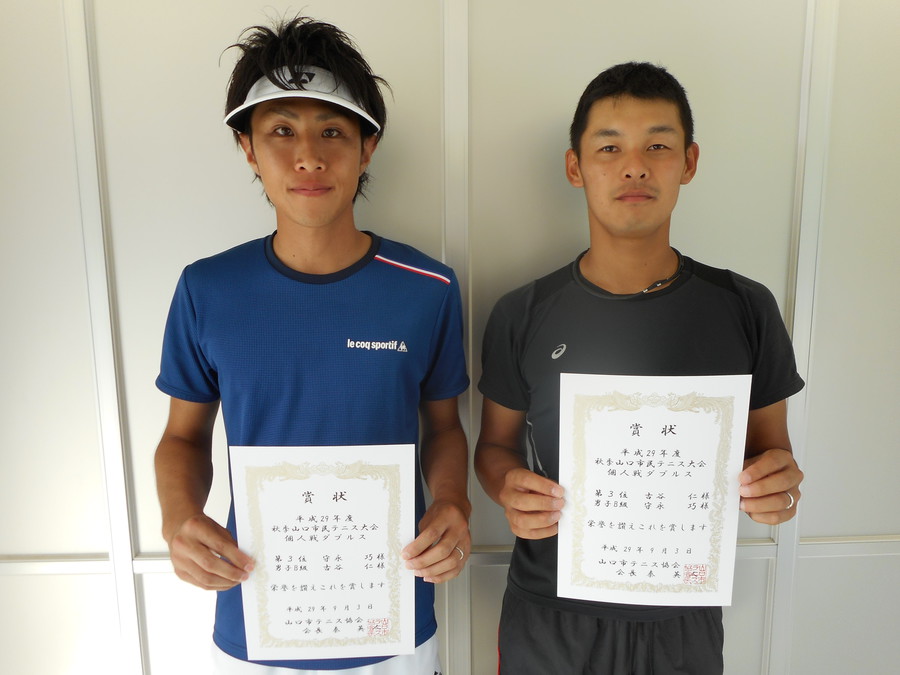 le coq sportif
賞状
平成29年度
秋季山口市民テニス大会
個人戦ダブルス
第3位 守永 巧様
男子B級 古谷 仁様
栄誉を讃えこれを賞します
平成29年9月3日
山口市テニス協会
会長 泰 英
賞状
平成29年度
秋季山口市民テニス大会
個人戦ダブルス
第3位 古谷 仁様
男子B級 守永 巧様
栄誉を讃えこれを賞します
平成29年9月3日
山口市テニス協会
会長 泰 英